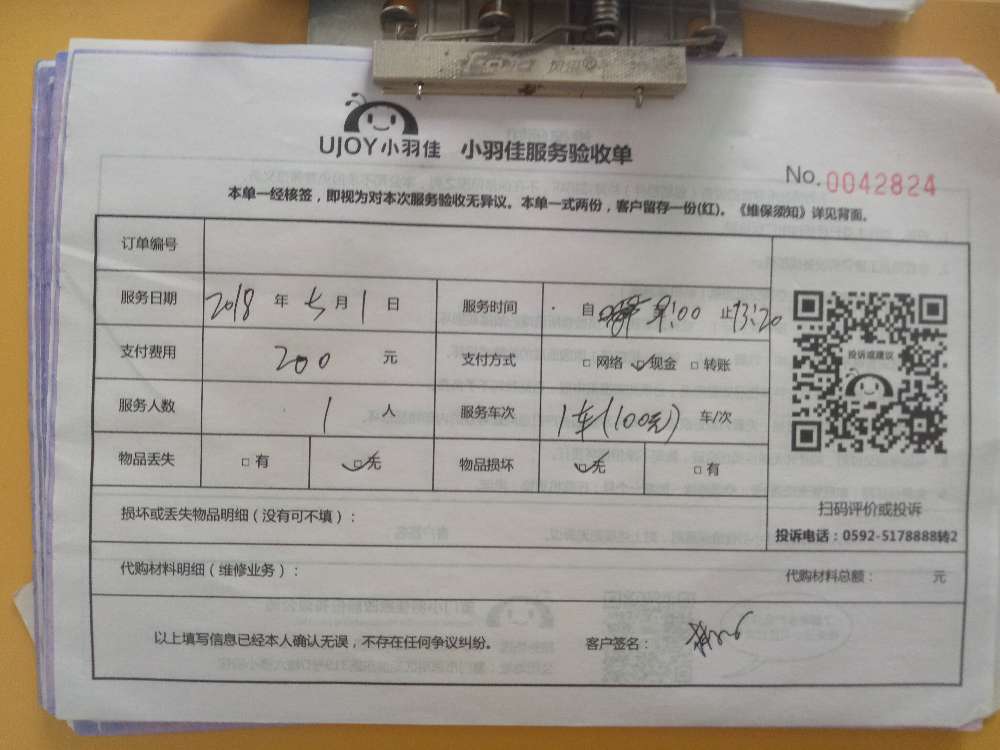 UJOY小羽佳 小羽佳服务验收单
No. 0042824
本单一经核签，即视为对本次服务验收无异议。本单一式两份，客户留存一份(红)。《维保须知》详见背面。
订单编号
服务日期 2018 年 七 月 1 日 服务时间 自 :00 止 13:20
支付费用 200 元 支付方式 □ 网络 现金 □ 转账
投诉或建议
服务人数 1 人 服务车次 1车(100元) 车/次
物品丢失 □ 有 □ 无 物品损坏 □ 无 □ 有
扫码评价或投诉
损坏或丢失物品明细（没有可不填）：
投诉电话：0592-5178888转2
代购材料明细（维修业务）： 代购材料总额： 元
以上填写信息已经本人确认无误，不存在任何争议纠纷。 客户签名：